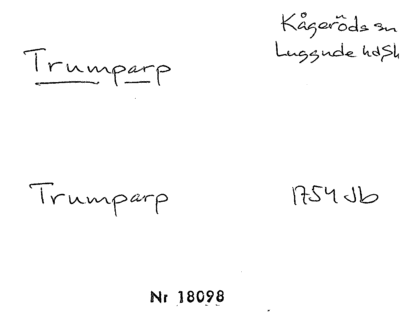 Trumparp
Kågeröds sn
Luggude hd Sk
Trumparp
1754 Jb
Nr 18098